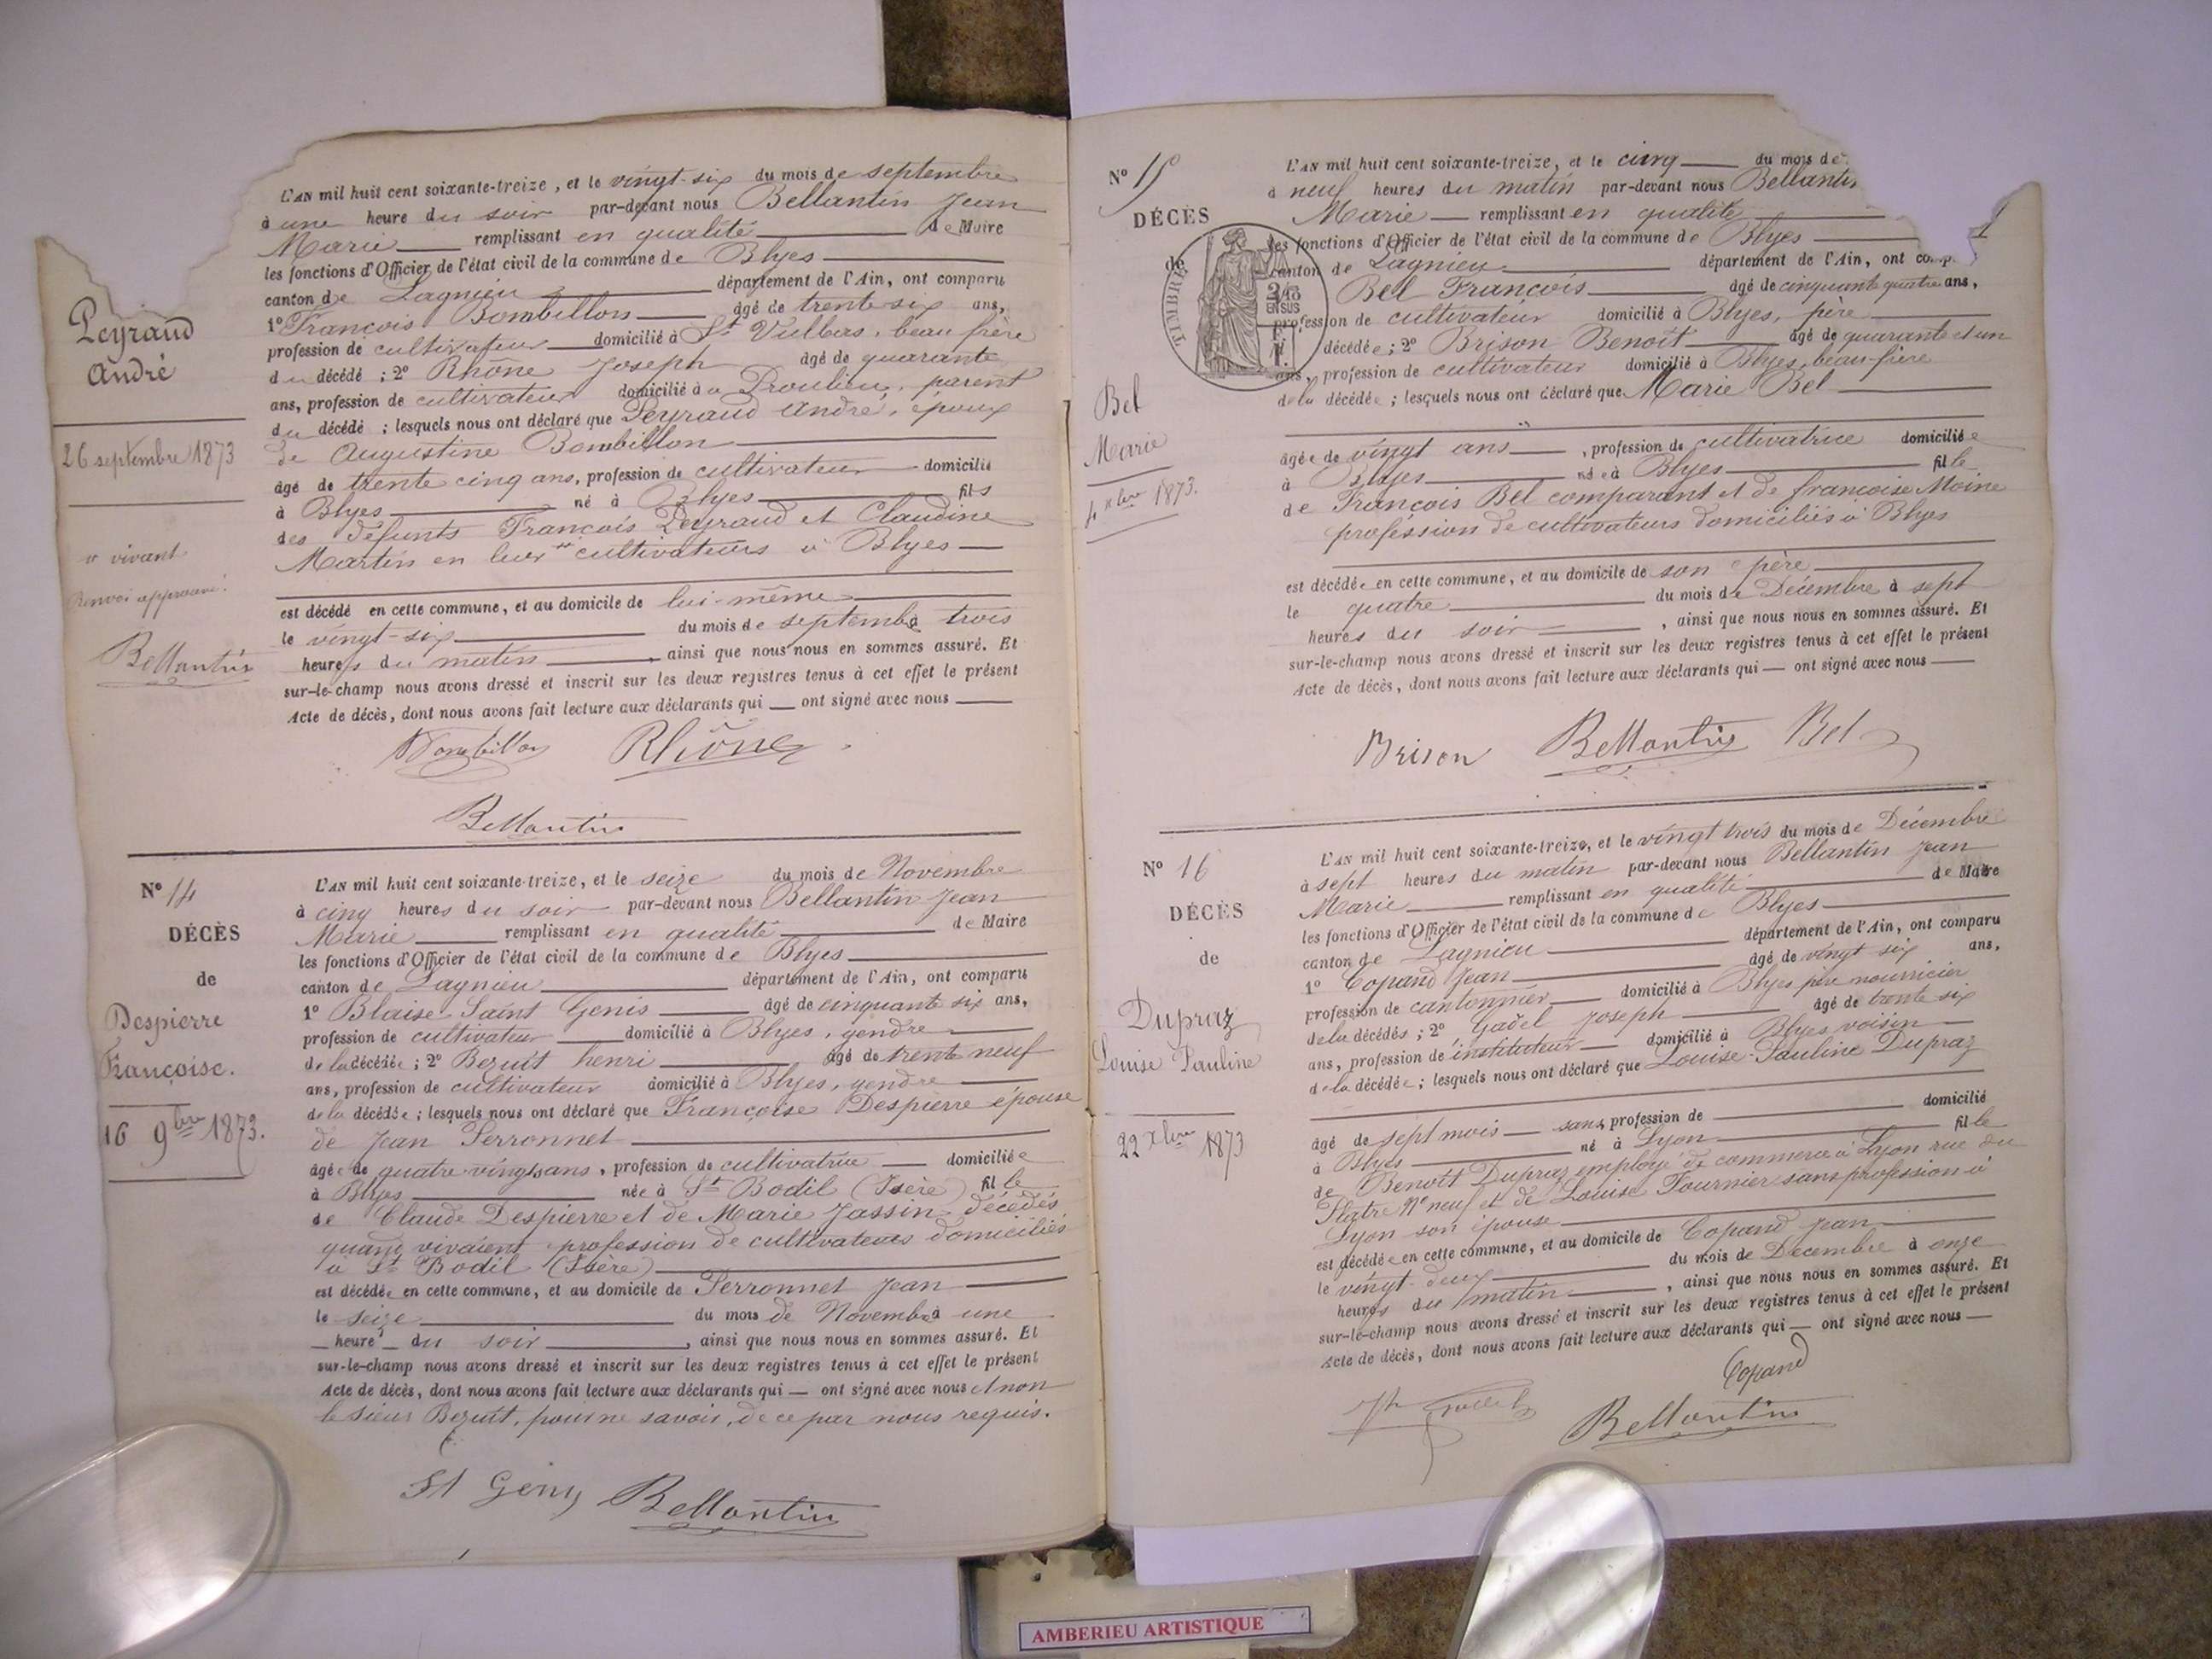 Peyraud
André
26 septembre 1873
vivant
Renvoi approuvé.
Bellantin
L'AN mil huit cent soixante-treize, et le vingt-six du mois de septembre
à une heure du soir par-devant nous Bellantin Jean
Marie remplissant en qualité de Maire
les fonctions d'Officier de l'état civil de la commune de Blyes
canton de Lagnieu département de l'Ain, ont comparu
1° François Bombillon âgé de trente six ans,
profession de cultivateur domicilié à St Vulbas, beau frère
du décédé ; 2° Rhône Joseph âgé de quarante
ans, profession de cultivateur domicilié à Proulieu, parent
du décédé ; lesquels nous ont déclaré que Peyraud André, époux
de Augustine Bombillon
âgé de trente cinq ans, profession de cultivateur domicilié
à Blyes né à Blyes fils
des défunts François Peyraud et Claudine
Martin en leur cultivateurs à Blyes
est décédé en cette commune, et au domicile de lui-même
le vingt-six du mois de septembre à trois
heures du matin, ainsi que nous nous en sommes assuré. Et
sur-le-champ nous avons dressé et inscrit sur les deux registres tenus à cet effet le présent
Acte de décès, dont nous avons fait lecture aux déclarants qui ont signé avec nous
Bombillon Rhône
Bellantin
N° 14
DÉCÈS
de
Despierre
Françoise.
16 9bre 1873.
L'AN mil huit cent soixante-treize, et le seize du mois de Novembre
à cinq heures du soir par-devant nous Bellantin Jean
Marie remplissant en qualité de Maire
les fonctions d'Officier de l'état civil de la commune de Blyes
canton de Lagnieu département de l'Ain, ont comparu
1° Blaise Saint Genis âgé de cinquante six ans,
profession de cultivateur domicilié à Blyes, gendre
de la décédée ; 2° Bezuit henri âgé de trente neuf
ans, profession de cultivateur domicilié à Blyes, gendre
de la décédée ; lesquels nous ont déclaré que Françoise Despierre épouse
de Jean Perronnet
âgée de quatre-vingts ans, profession de cultivatrice domiciliée
à Blyes née à St Bodil (Isère) fille
de Claude Despierre et de Marie Jassin décédés
quand vivaient profession de cultivateurs domiciliés
à St Bodil (Isère)
est décédée en cette commune, et au domicile de Perronnet Jean
le seize du mois de Novembre à une
heure du soir, ainsi que nous nous en sommes assuré. Et
sur-le-champ nous avons dressé et inscrit sur les deux registres tenus à cet effet le présent
Acte de décès, dont nous avons fait lecture aux déclarants qui ont signé avec nous et non
le sieur Bezuit, pour ne savoir, de ce par nous requis.
St Genis Bellantin
N° 15
DÉCÈS
de
TIMBRE
2/10
EN SUS
Bel
Marie
4 Xbre 1873.
L'AN mil huit cent soixante-treize, et le cinq du mois de
à neuf heures du matin par-devant nous Bellantin
Marie remplissant en qualité
les fonctions d'Officier de l'état civil de la commune de Blyes
canton de Lagnieu département de l'Ain, ont comp
Bel François âgé de cinquante quatre ans,
profession de cultivateur domicilié à Blyes, père
décédée ; 2° Brison Benoit âgé de quarante et un
ans, profession de cultivateur domicilié à Blyes, beau-frère
de la décédée ; lesquels nous ont déclaré que Marie Bel
âgée de vingt ans, profession de cultivatrice domiciliée
à Blyes née à Blyes fille
de François Bel comparant et de françoise Moine
profession de cultivateurs domiciliés à Blyes
est décédée en cette commune, et au domicile de son père
le quatre du mois de Décembre à sept
heures du soir, ainsi que nous nous en sommes assuré. Et
sur-le-champ nous avons dressé et inscrit sur les deux registres tenus à cet effet le présent
Acte de décès, dont nous avons fait lecture aux déclarants qui ont signé avec nous
Brison Bellantin Bel
N° 16
DÉCÈS
de
Dupraz
Louise Pauline
22 Xbre 1873
L'AN mil huit cent soixante-treize, et le vingt trois du mois de Décembre
à sept heures du matin par-devant nous Bellantin Jean
Marie remplissant en qualité de Maire
les fonctions d'Officier de l'état civil de la commune de Blyes
canton de Lagnieu département de l'Ain, ont comparu
1° Copand Jean âgé de vingt six ans,
profession de cantonnier domicilié à Blyes père nourricier
de la décédés ; 2° Gadel Joseph âgé de trente six
ans, profession de instituteur domicilié à Blyes voisin
de la décédée ; lesquels nous ont déclaré que Louise-Pauline Dupraz
âgé de sept mois sans profession de domicilié
à Blyes né à Lyon fille
de Benoit Dupraz employé de commerce à Lyon rue du
Platre N° neuf et de Louise Fournier sans profession à
Lyon son épouse
est décédée en cette commune, et au domicile de Copand Jean
le vingt-deux du mois de Décembre à onze
heures du matin, ainsi que nous nous en sommes assuré. Et
sur-le-champ nous avons dressé et inscrit sur les deux registres tenus à cet effet le présent
Acte de décès, dont nous avons fait lecture aux déclarants qui ont signé avec nous
Copand
Bellantin
AMBERIEU ARTISTIQUE